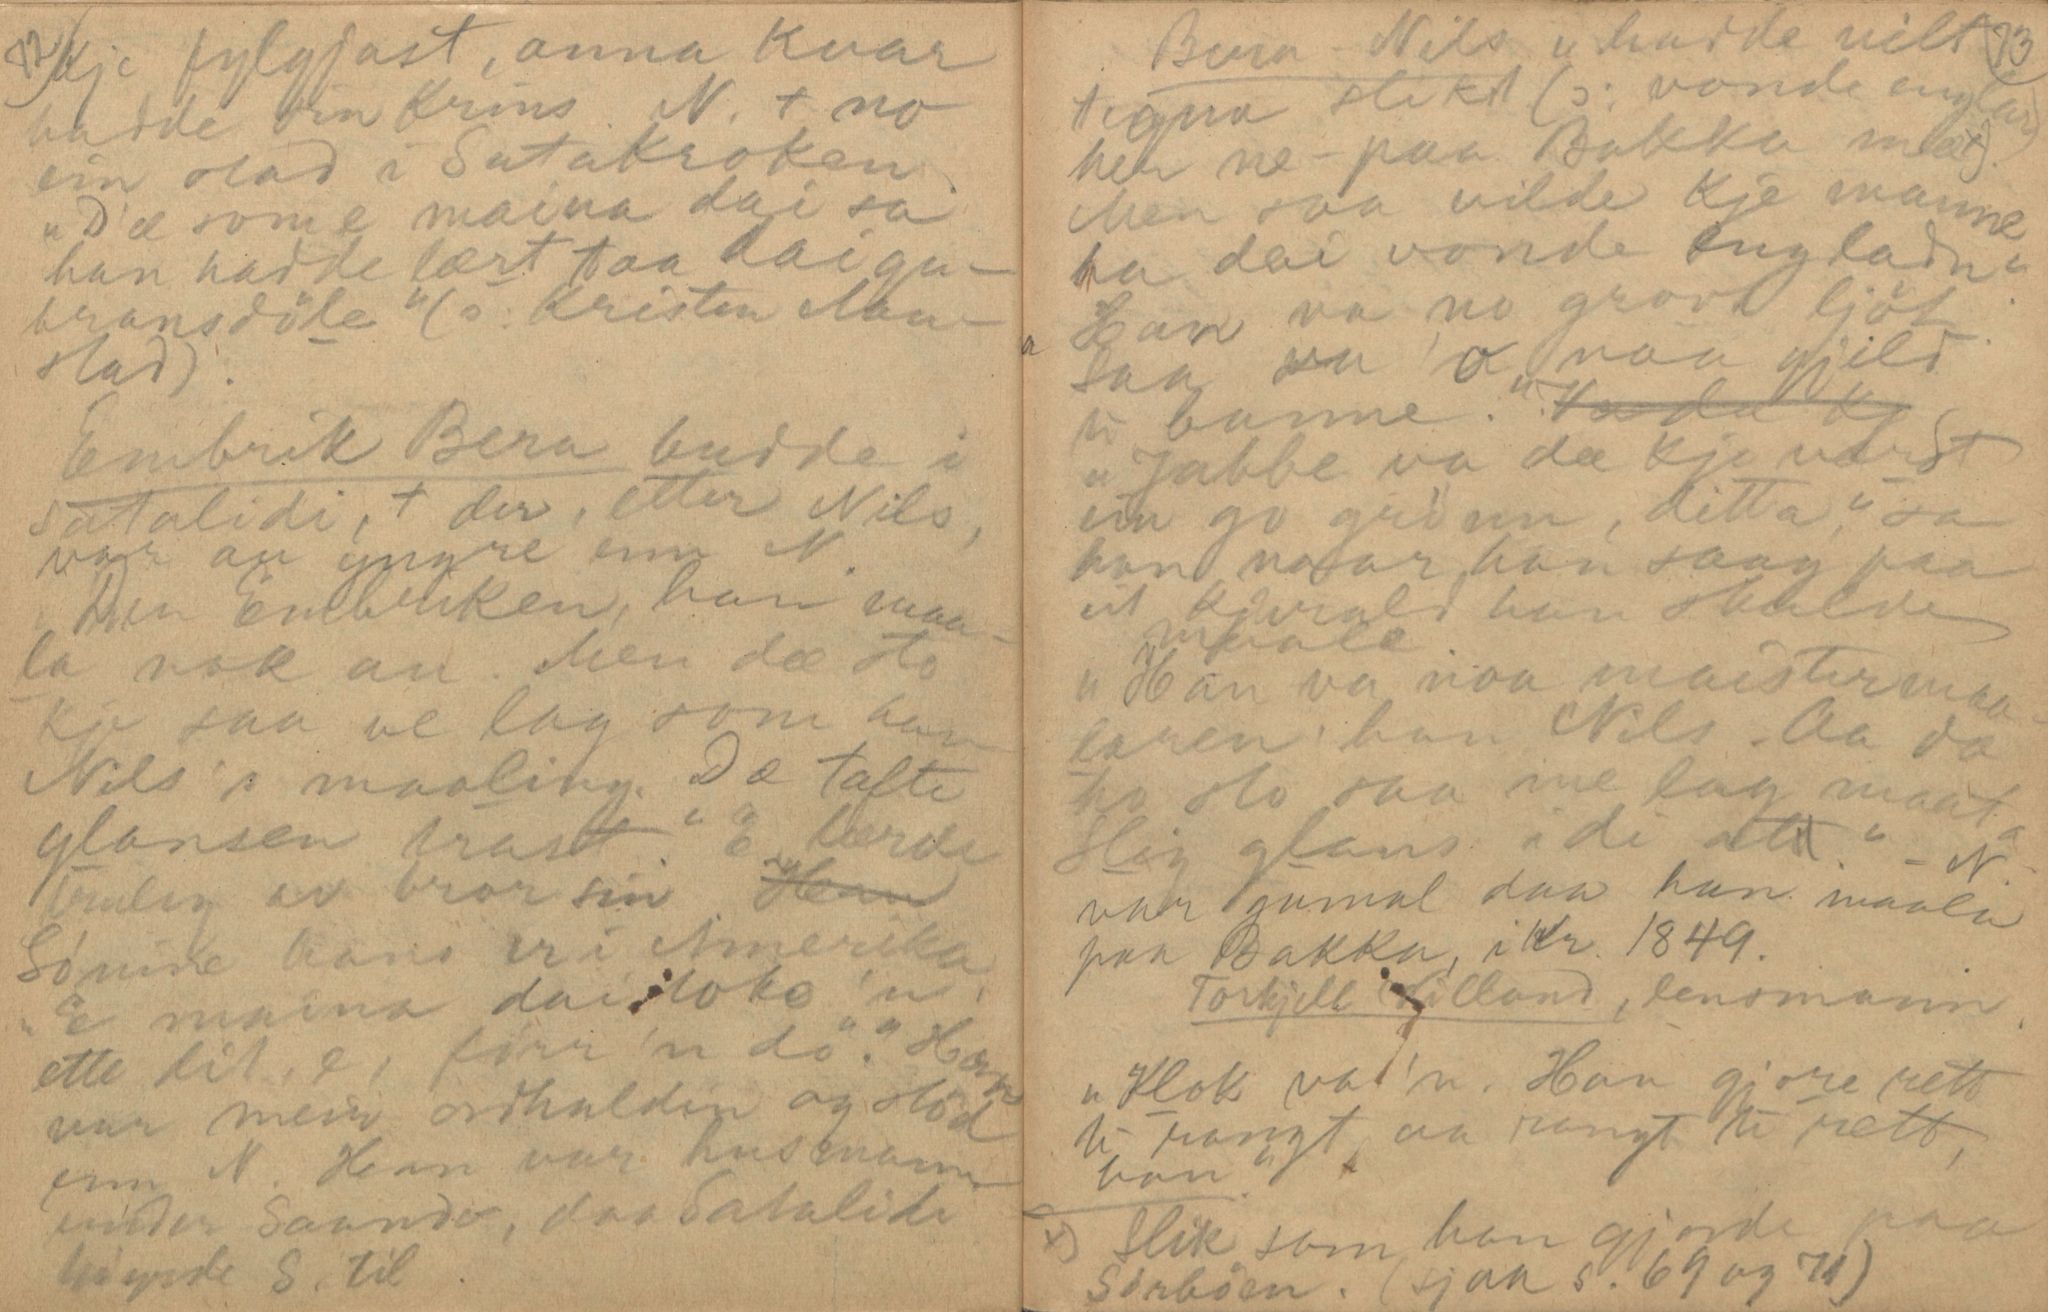 72
kje fylgjast, anna kvar
hadde sin krins. N. † no
ein stad i Satakroken.
"D'æ som e maina dai sa
han hadde lært taa dai gu-
bransdöle" (ɔ: Kristen Aan-
stad).
Embrik Bera budde i
Satalidi, † der, etter Nils,
var au yngre enn N.
"Den Embriken, han maa-
la nok au. Men dæ sto
kje saa ve lag som han
Nils's maaling. Dæ tafte
glansen brast." E. lærde
truleg av bror sin.
Sönine hans er i Amerika,
"E maina dai toke 'n
ette dit, e, förr 'n dö." Han
var meir ordhaldin og stöd
enn N. Han var husmann
under Saando, daa Satalidi
höyrde S. til.
73
Bera-Nils "hadde vilt
tegna slikt (ɔ: vonde englar)
her ne-paa Bakka mæt).
Men saa vilde kje manne
ha dai vonde engladn".
Han va no grovt ljöt.
Saa va 'o naa gjild
ti banne."
"Jabbe va dæ kje vorst
ein go grönn, ditta," sa
han naar han saag paa
eit kjörald han skulde
maale
"Han va noa maistermaa-
laren han Nils. Aa da
ho sto saa me lag maat.
Slig glans i di alt." - N.
var gamal daa han maala
paa Bakka, i kr. 1849.
Torkjell Lilland, lensmann.
"Klok va 'n. Han gjore rett
ti rangt, aa rangt ti rett,
han".
x) Slik som han gjorde paa
Sörböen. (sjaa s. 69 og 71)